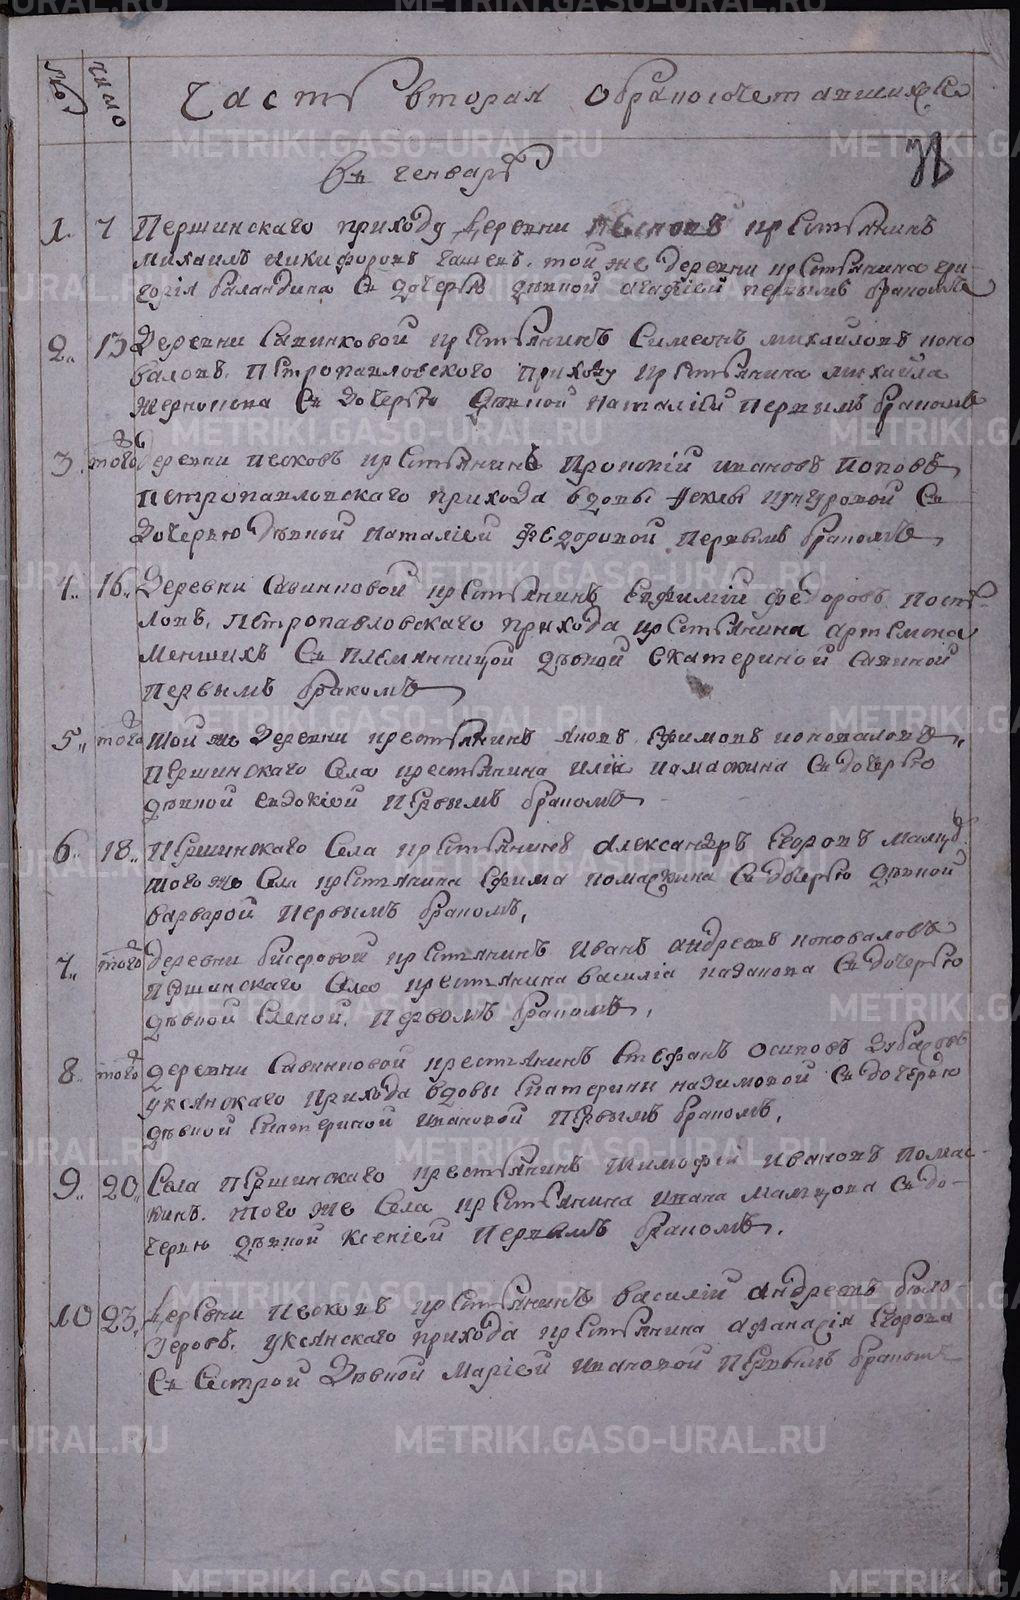 METRIKI.GASO-URAL.RU
число
Часть вторая о бракосочетавшихся
въ генварѣ
1. 7 Першинскаго приходу деревни Песковъ крестьянинъ
Михаилъ Никифоровъ той же деревни крестьянина Гри-
горія Баландина съ дочерью дѣвкой Агафіей первымъ бракомъ
2. 13 Деревни Савинковой крестьянинъ Симеонъ Михайловъ Коно
валовъ. Петропавловского приходу крестьянина Михаила
съ дочерью дѣвкой Наталіей первымъ бракомъ
3. того деревни Песковъ крестьянинъ Прокопій Ивановъ Поповъ
Петропавловскаго прихода вдовы Феклы Кунгуровой съ
дочерью дѣвкой Наталіей Федоровой первымъ бракомъ
4. 16. Деревни Савинковой крестьянинъ Евфимій Федоровъ
Петропавловскаго прихода крестьянина Артемона
Меншихъ съ племянницей дѣвкой Екатериной Савиной
первымъ бракомъ
5. того Той же деревни крестьянинъ Яковъ Ефимовъ Коноваловъ,
Першинскаго села крестьянина Иліи Комаркина съ дочерью
дѣвкой Евдокіей первымъ бракомъ
6. 18. Першинскаго села крестьянинъ Александръ Егоровъ
того же села крестьянина Ефима съ дочерью дѣвкой
Варварой первымъ бракомъ,
7. того деревни Бисеровой крестьянинъ Иванъ Андреевъ Коноваловъ
Першинскаго села крестьянина Василія Кадакова съ дочерью
дѣвкой Еленой, первымъ бракомъ,
8. того деревни Савинковой крестьянинъ Стефанъ Осиповъ
Уксянскаго прихода вдовы Екатерины съ дочерью
дѣвкой Екатериной Ивановой первымъ бракомъ,
9. 20. Села Першинскаго крестьянинъ Тимофей Ивановъ
того же села крестьянина Ивана Мальцова съ до-
черью дѣвкой Ксеніей первымъ бракомъ.
10 23, деревни Песковъ крестьянинъ Василій Андреевъ Бѣло
зеровъ. Уксянскаго прихода крестьянина Афанасія Егорова
съ сестрой дѣвкой Маріей Ивановой первымъ бракомъ